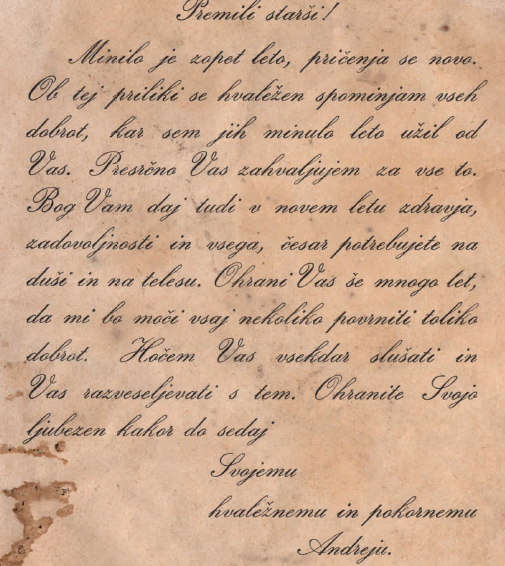 Premili starši!
Minilo je zopet leto, pričenja se novo.
Ob tej priliki se hvaležen spominjam vseh
dobrot, kar sem jih minulo leto užil od
Vas. Presrčno Vas zahvaljujem za vse to.
Bog Vam daj tudi v novem letu zdravja,
zadovoljnosti in vsega, česar potrebujete na
duši in na telesu. Ohrani Vas še mnogo let,
da mi bo moči vsaj nekoliko povrniti toliko
dobrot. Hočem Vas vsekdar slušati in
Vas razveseljevati s tem. Ohranite Svojo
ljubezen kakor do sedaj
Svojemu
hvaležnemu in pokornemu
Andreju.